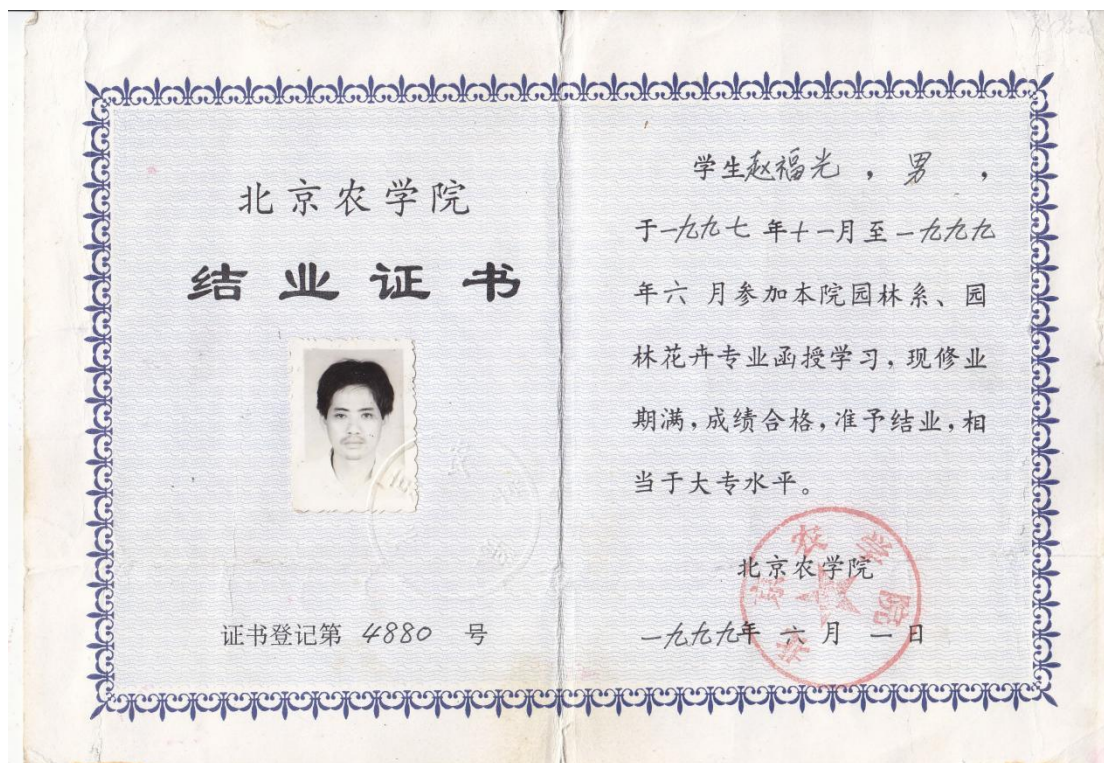 北京农学院
结业证书
证书登记第 4880 号
学生赵福光，男，
于一九九七年十一月至一九九九
年六 月参加本院园林系、园
林花卉专业函授学习，现修业
期满，成绩合格，准予结业，相
当于大专水平。
北京农学院
一九九九年 六 月 一日
北京农学院